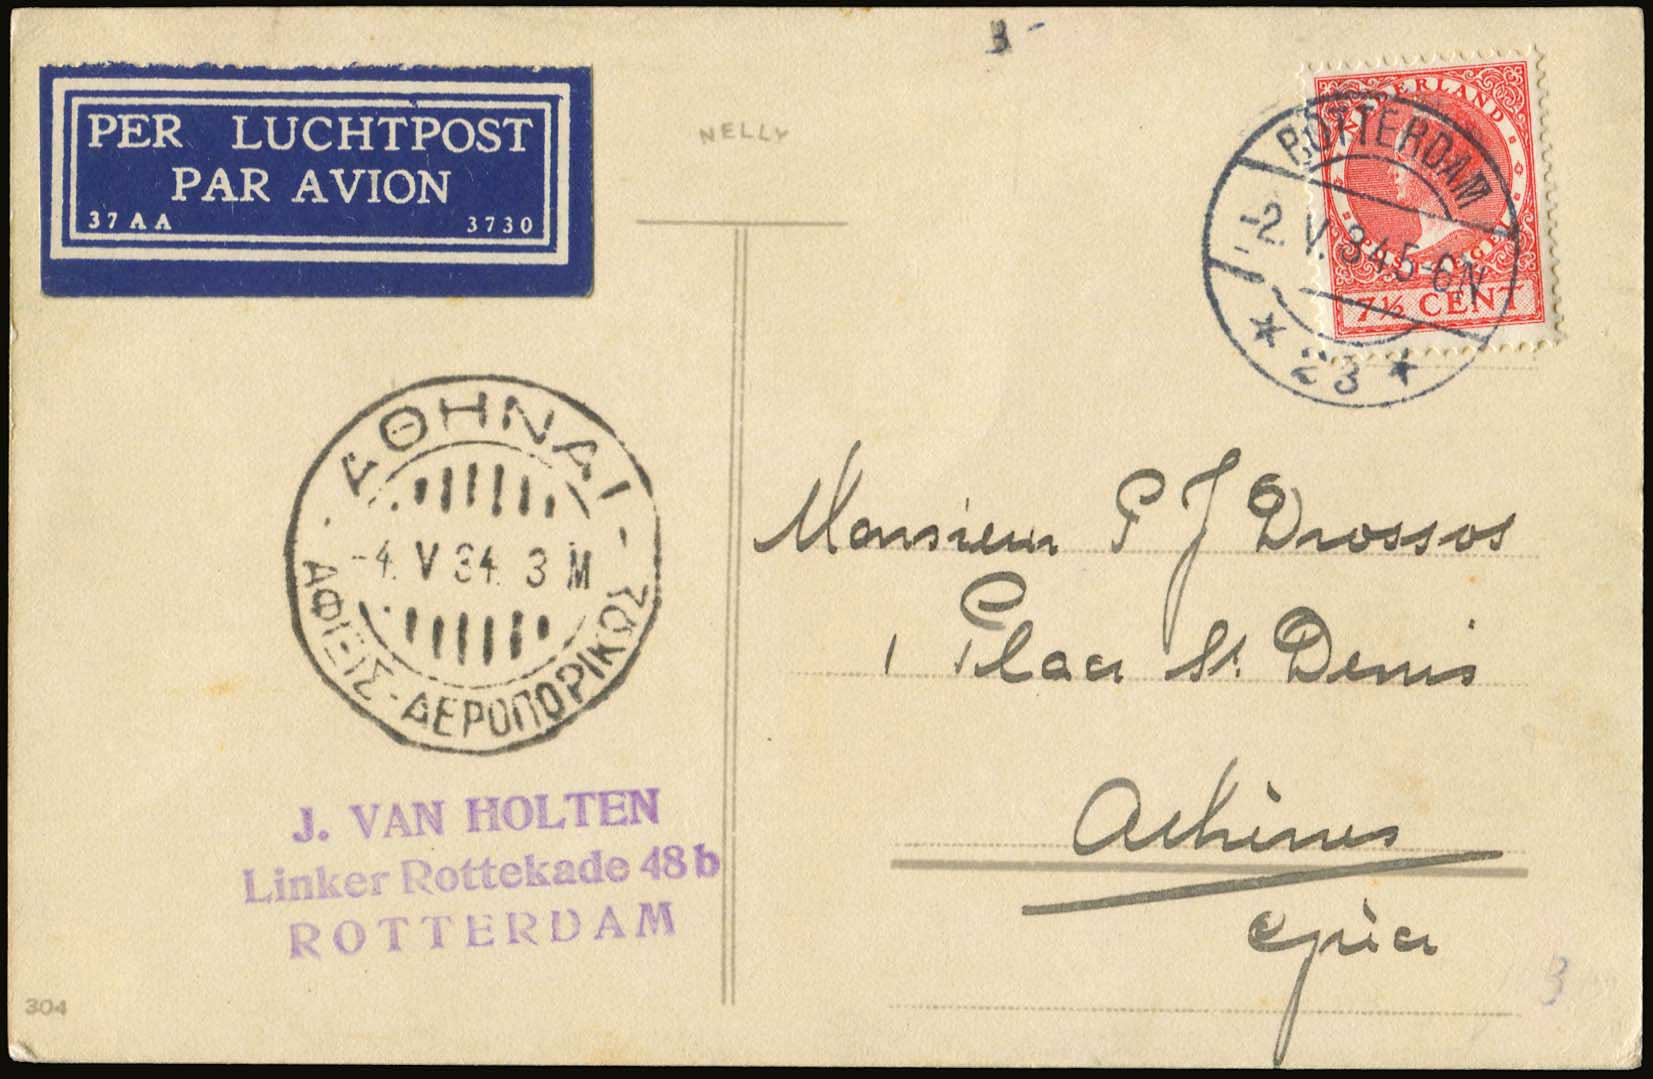 PER LUCHTPOST
PAR AVION
37 A A 3730
NELLY
NEDERLAND
7½ CENT
ROTTERDAM
-2. V. 34 5-6N
* 23 *
ΑΘΗΝΑΙ
-4. V 34. 3 M
ΑΦΙΞΙΣ-ΑΕΡΟΠΟΡΙΚΩΣ
Monsieur P J Drossos
1 Place St. Denis
Athènes
J. VAN HOLTEN
Linker Rottekade 48 b
ROTTERDAM
304